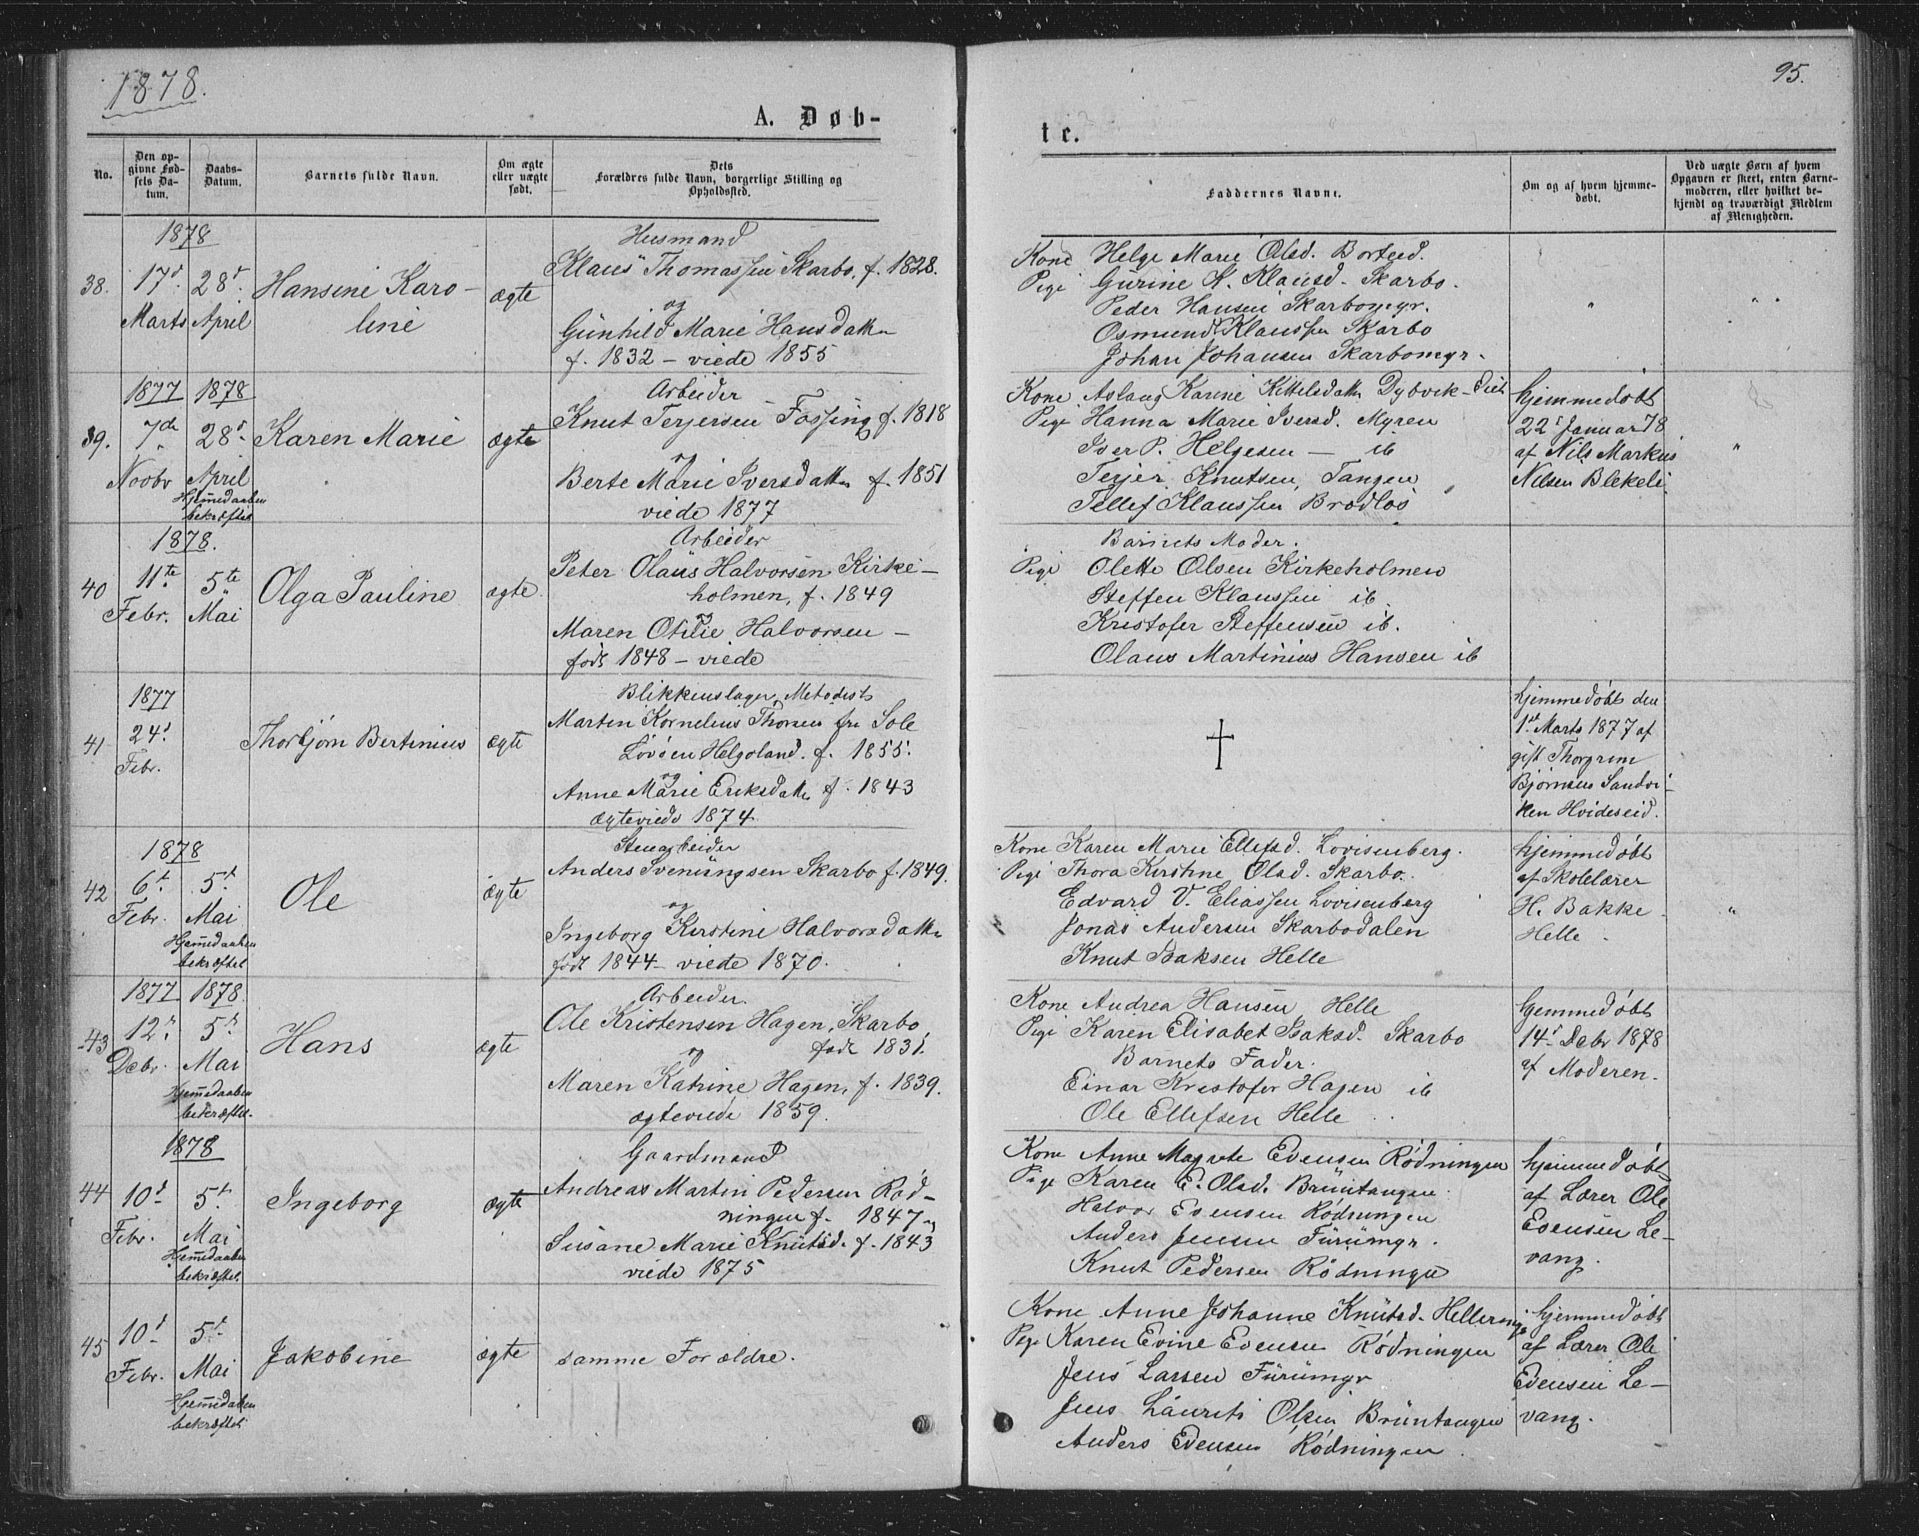 1878.
95.
A. Døb-
te.
No.
Den op-
givne Fød-
sels Da-
tum.
Daabs-
Datum.
Barnets fulde Navn.
Om ægte
eller uægte
født.
Dets
Forældres fulde Navn, borgerlige Stilling og
Opholdssted.
Faddernes Navne.
Om og af hvem hjemme-
døbt.
Ved uægte Børn af hvem
Opgaven er skeet, enten Barne-
moderen, eller hvilket be-
kjendt og troværdigt Medlem
af Menigheden.
1878
38. 17d Marts
28d April
Hansine Karo-
line
ægte
Husmand
Klaus Thomassen Skarbo, f. 1828.
og
Gunhild Marie Hansdatter
f. 1832 - viede 1855
Kone Helge Marie Olsd. Borteid.
Pige Gurine A. Klausd. Skarbo.
Peder Hansen Skarbomyr.
Osmund Klaussen Skarbo
Johan Johansen Skarbomyr.
1877 1878
39. 7de Novbr
28d April
Hjemmedaaben
bekræftet
Karen Marie
ægte
Arbeider
Knut Terjersen Fossing f. 1818
og
Berte Marie Iversdatter f. 1851
viede 1877
Kone Aslaug Karine Kittelsdatter Dybvik-
Pige Hanna Marie Iversd. Myren
Iver P. Helgesen - ib
Terjer Knutsen, Tangen
Tellef Klaussen Brodløs
hjemmedøbt
22d Januar 78
af Nils Markus
Nilsen Blekeli
1878.
40 11te Febr.
5te Mai
Olga Pauline
ægte.
Arbeider
Peter Olaus Halvorsen Kirke-
holmen, f. 1849
og
Maren Otilie Halvorsen -
født 1848 - viede
Barnets Moder.
Pige Olette Olsen Kirkeholmen
Steffen Klaussen ib.
Kristofer Steffensen ib.
Olaus Martinius Hansen ib
1877
41 24d Febr.
Thorbjørn Bertinius
ægte
Blikkenslager, Metodist
Martin Kornelius Thorsen fra Sole
Lovøen Helgoland. f. 1855.
og
Anne Marie Eriksdatter f. 1843
ægteviede 1874
†
hjemmedøbt den
1ste Marts 1877 af
gift Thorgrim
Bjørnsen Sandvi-
ken Hvideseid.
1878
42 6d Febr.
5d Mai
Hjemmedaaben
bekræftet
Ole
ægte
Stenarbeider
Anders Svenungsen Skarbo f. 1849.
og
Ingeborg Kirstine Halvorsdatter
født 1844 - viede 1870.
Kone Karen Marie Ellefsd. Lovisenberg.
Pige Thora Kirstine Olsd. Skarbo.
Edvard V. Eliassen Lovisenberg
Jonas Andersen Skarbodalen
Knut Isaksen Helle
hjemmedøbt
af Skolelærer
H. Bakke
Helle
1877 1878
43 12d Debr.
5d Mai
Hjemmedaaben
bekræftet.
Hans
ægte
Arbeider
Ole Kristensen Hagen, Skarbo,
født 1831.
og
Maren Katrine Hagen, f. 1839.
ægteviede 1859.
Kone Andrea Hansen Helle
Pige Karen Elisabet Isaksd. Skarbo
Barnets Fader.
Einar Kristofer Hagen ib
Ole Ellefsen Helle
hjemmedøbt
14d Debr 1878
af Moderen.
1878
44 10d Febr.
5d Mai
Hjemmedaaben
bekræftet
Ingeborg
ægte
Gaardmand
Andreas Martin Pedersen Rød-
ningen f. 1847 og
Susane Marie Knutsd. f. 1843
viede 1875
Kone Anne Magrete Evensen Rødningen
Pige Karen E. Olsd. Bruntangen
Halvor Evensen Rødningen
Anders Jensen Furumyr.
Knut Pedersen Rødningen
hjemmedøbt
af Lærer Ole
Evensen Le-
vang.
45 10d Febr.
5d Mai
Hjemmedaaben
bekræftet
Jakobine
ægte
samme Forældre.
Kone Anne Johanne Knutsd. Helleringe
Pige Karen Evine Evensen Rødningen
Jens Larsen Furumyr
Jens Laurits Olsen Bruntangen
Anders Evensen Rødningen
hjemmedøbt
af Lærer Ole
Evensen Le-
vang.